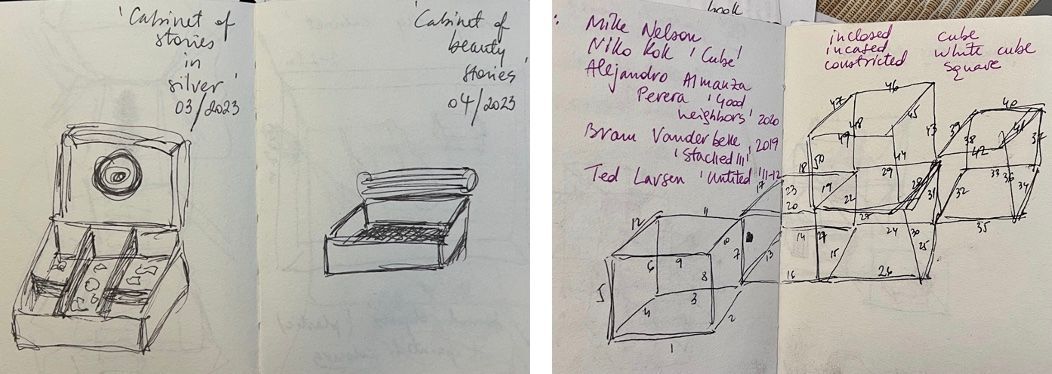 'Cabinet of
stories
in
silver'
03/2023
'Cabinet of
beauty
stories'
04/2023
book
Mike Nelson
Niko Kok 'Cube'
Alejandro Almanza
Perera 'Good
neighbors' 2020
Bram Vanderbeke, 2019
'Stacked III'
Ted Larsen 'Untitled' '11-12
inclosed
incased
constricted
cube
white cube
square
47
46
45
48
49
43
44
50
18
29
40
41
39
38
42
33
36
34
32
31
35
28
17
23
20
19
22
27
24
30
25
14
15
16
26
12
11
10
9
8
7
13
6
5
4
3
2
1